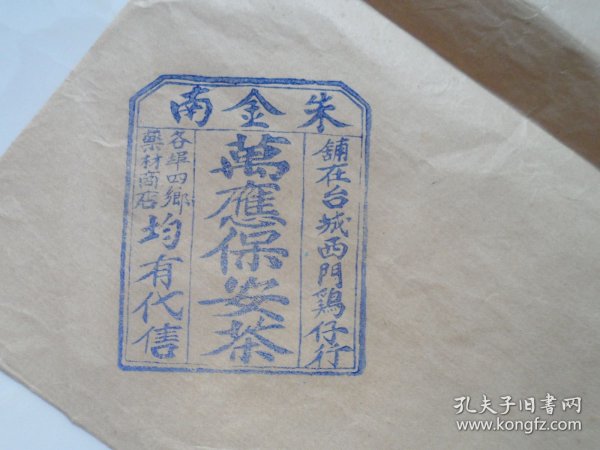 朱金南
舖在台城西門鷄仔行
萬應保安茶
各埠四鄉
藥材商店
均有代售
孔夫子旧书网
www.kongfz.com